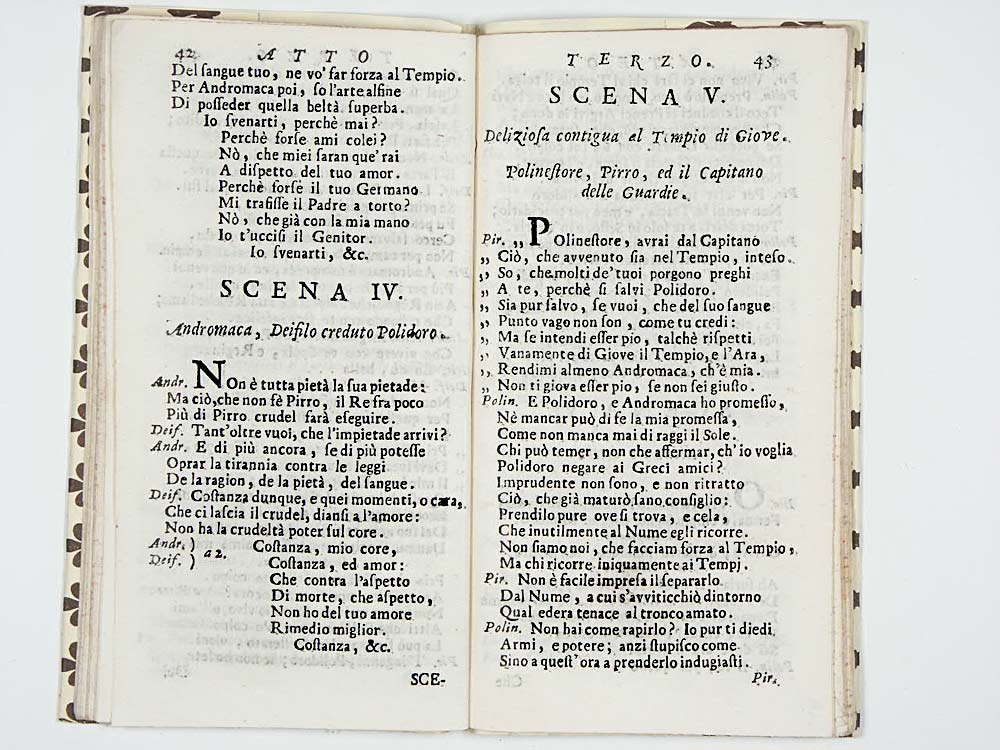 42 ATTO
Del ſangue tuo, ne vo' far forza al Tempio.
Per Andromaca poi, ſo l'arte alfine
Di poſſeder quella beltà ſuperba.
Io ſvenarti, perchè mai?
Perchè forſe ami colei?
Nò, che miei ſaran que' rai
A diſpetto del tuo amor.
Perchè forſe il tuo Germano
Mi trafiſſe il Padre a torto?
Nò, che già con la mia mano
Io t'ucciſi il Genitor.
Io ſvenarti, &c.
SCENA IV.
Andromaca, Deifilo creduto Polidoro.
Andr. NOn è tutta pietà la ſua pietade:
Ma ciò, che non fè Pirro, il Re fra poco
Più di Pirro crudel farà eſeguire.
Deif. Tant'oltre vuoi, che l'impietade arrivi?
Andr. E di più ancora, ſe di più poteſſe
Oprar la tirannia contra le leggi
De la ragion, de la pietà, del ſangue.
Deif. Coſtanza dunque, e quei momenti, o cara,
Che ci laſcia il crudel, dianſi a l'amore:
Non ha la crudeltà poter ſul core.
Andr. ) a 2. Coſtanza, mio core,
Deif. ) Coſtanza, ed amor:
Che contra l'aſpetto
Di morte, che aſpetto,
Non ho del tuo amore
Rimedio miglior.
Coſtanza, &c.
SCE-
TERZO. 43
SCENA V.
Delizioſa contigua al Tempio di Giove.
Polineſtore, Pirro, ed il Capitano
delle Guardie.
Pir. ,, POlineſtore, avrai dal Capitano
,, Ciò, che avvenuto ſia nel Tempio, inteſo.
,, So, che molti de' tuoi porgono preghi
,, A te, perchè ſi ſalvi Polidoro.
,, Sia pur ſalvo, ſe vuoi, che del ſuo ſangue
,, Punto vago non ſon, come tu credi:
,, Ma ſe intendi eſſer pio, talchè riſpetti
,, Vanamente di Giove il Tempio, e l'Ara,
,, Rendimi almeno Andromaca, ch'è mia.
,, Non ti giova eſſer pio, ſe non ſei giuſto.
Polin. E Polidoro, e Andromaca ho promeſſo,
Nè mancar può di fe la mia promeſſa,
Come non manca mai di raggi il Sole.
Chi può temer, non che affermar, ch'io voglia
Polidoro negare ai Greci amici?
Imprudente non ſono, e non ritratto
Ciò, che già maturò ſano conſiglio:
Prendilo pure ove ſi trova, e cela,
Che inutilmente al Nume egli ricorre.
Non ſiamo noi, che facciam forza al Tempio,
Ma chi ricorre iniquamente ai Tempj.
Pir. Non è facile impreſa il ſepararlo
Dal Nume, a cui s'avviticchiò dintorno
Qual edera tenace al tronco amato.
Polin. Non hai come rapirlo? Io pur ti diedi
Armi, e potere; anzi ſtupiſco come
Sino a queſt'ora a prenderlo indugiaſti.
Pir.